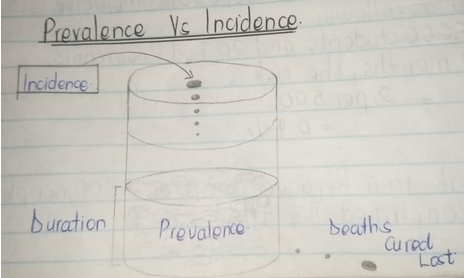 Prevalence Vs Incidence.
Incidence
Duration
Prevalence
Deaths
Cured
Lost